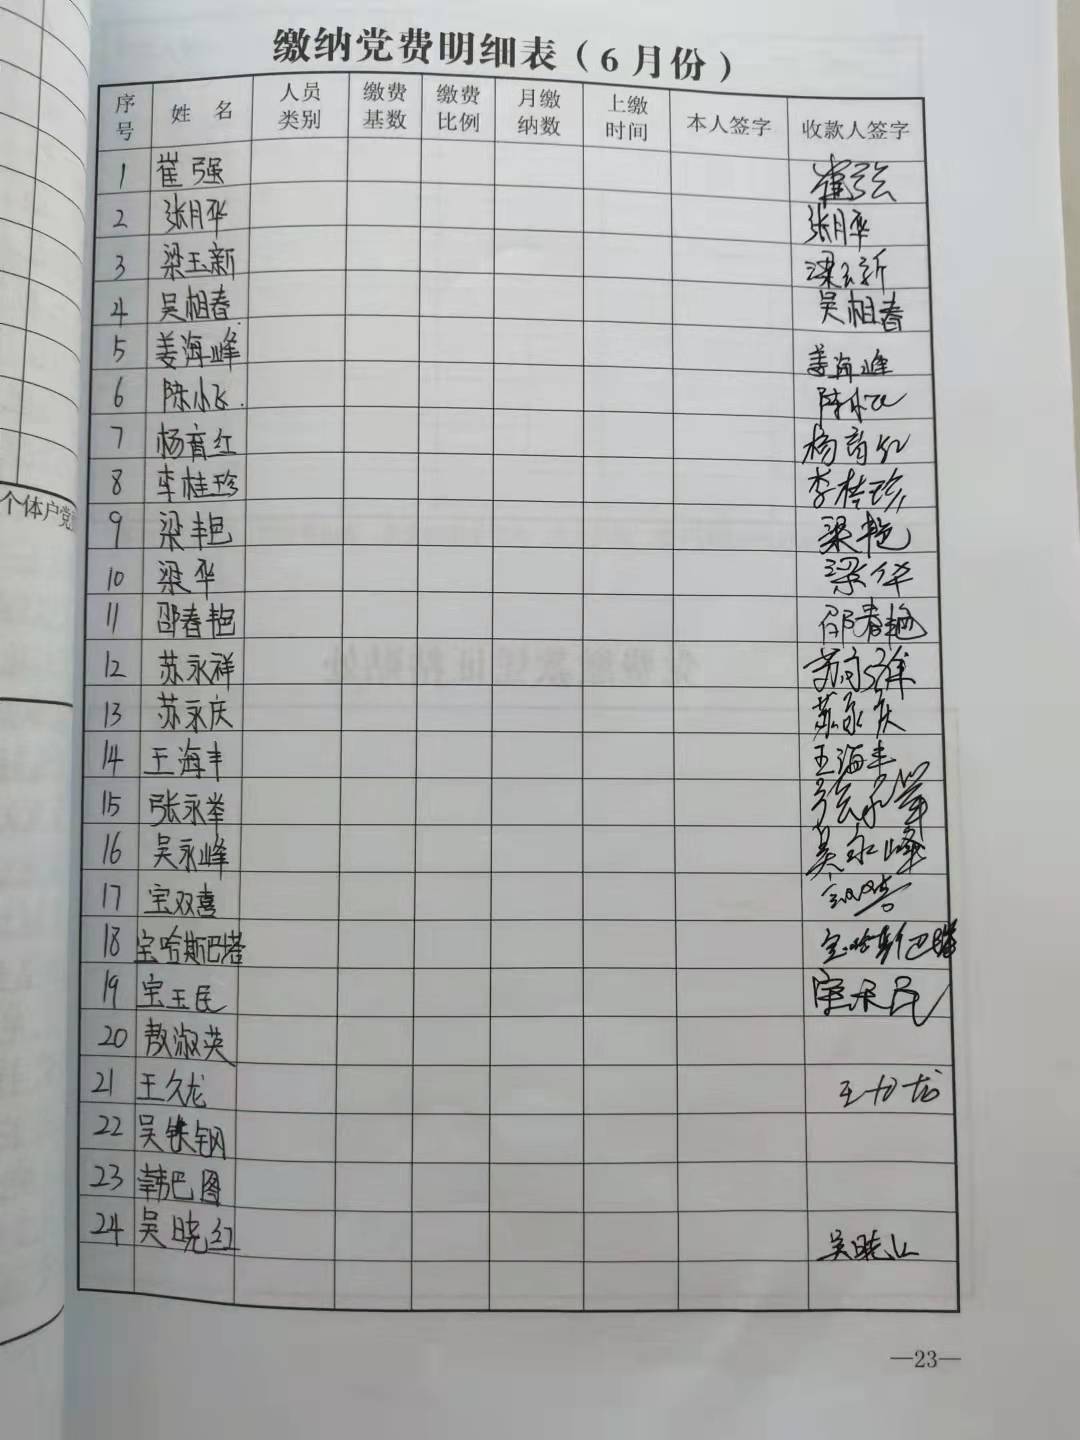 缴纳党费明细表（6月份）
序号 姓名 人员类别 缴费基数 缴费比例 月缴纳数 上缴时间 本人签字 收款人签字
1 崔强 崔强
2 张月华 张月华
3 梁玉新 梁玉新
4 吴相春 吴相春
5 姜海峰 姜海峰
6 陈小飞 陈小飞
7 杨育红 杨育红
8 李桂珍 李桂珍
9 梁艳 梁艳
10 梁华 梁华
11 邵春艳 邵春艳
12 苏永祥 苏永祥
13 苏永庆 苏永庆
14 王海丰 王海丰
15 张永举 张永举
16 吴永峰 吴永峰
17 宝双喜 宝双喜
18 宝哈斯巴塔 宝哈斯巴塔
19 宝玉民 宝玉民
20 敖淑英
21 王久龙 王久龙
22 吴铁钢
23 韩巴图
24 吴晓红 吴晓红
个体户党
—23—